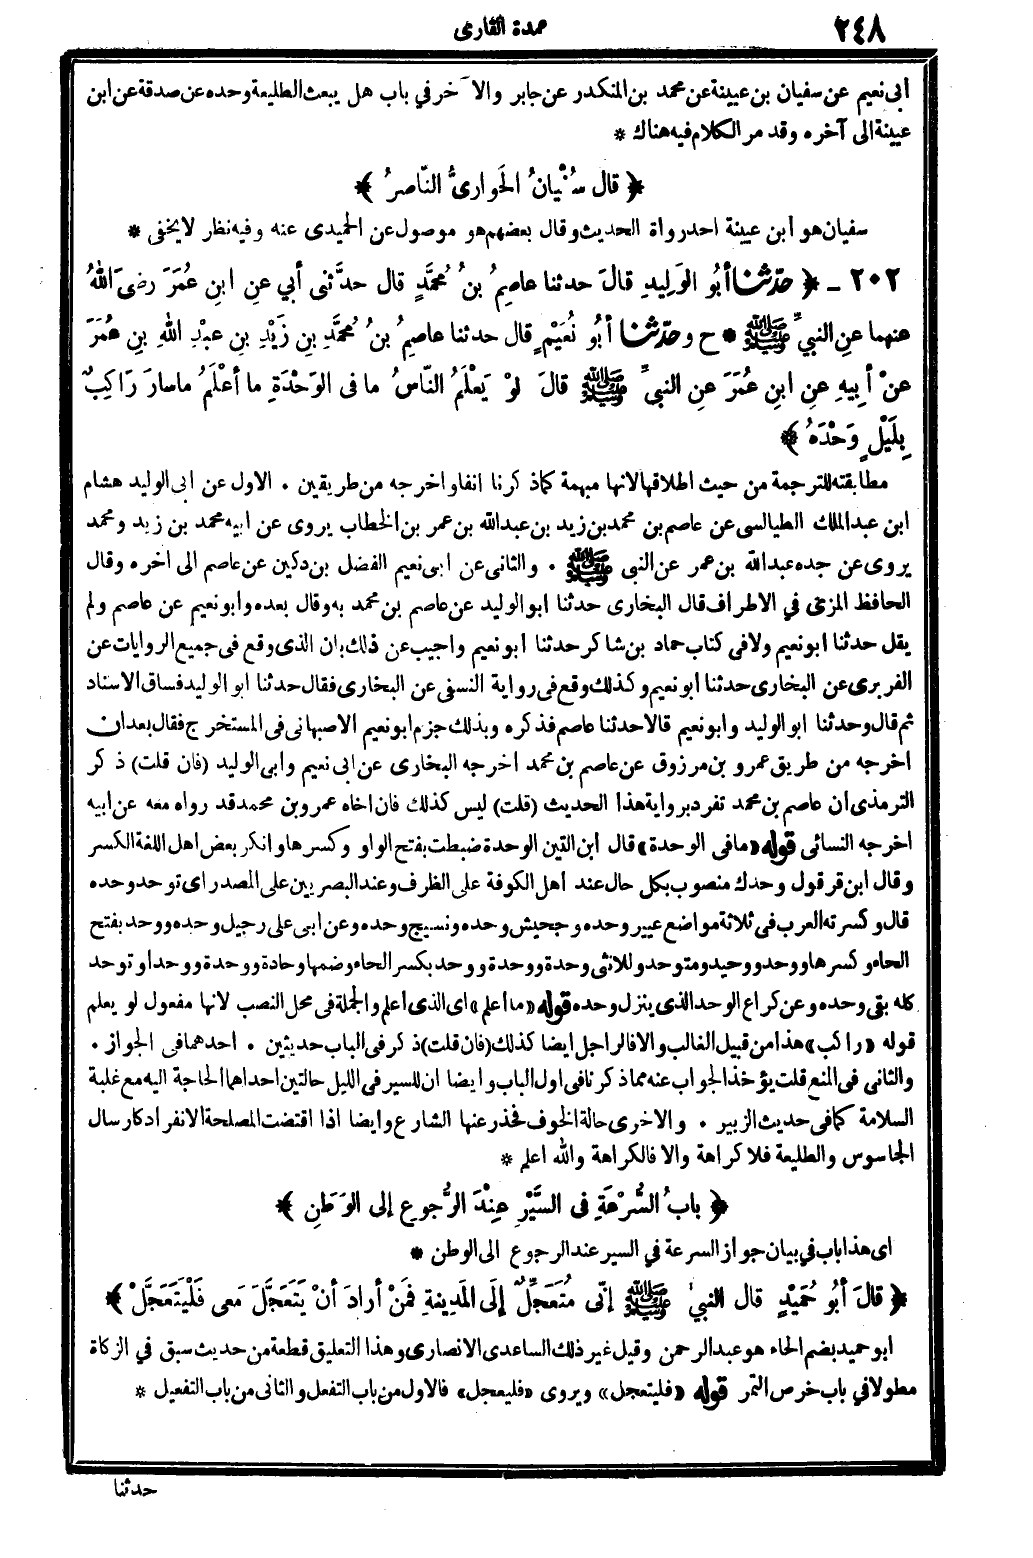 ٢٤٨
عمدة القارى
أبى نعيم عن سفيان بن عيينة عن محمد بن المنكدر عن جابر والآخر في باب هل يبعث الطليعة وحده عن صدقة عن ابن
عيينة الى آخره وقد مر الكلام فيه هناك *
﴿ قال سُفْيانُ الحَوارىُّ النّاصرُ ﴾
سفيان هو ابن عيينة احد رواة الحديث وقال بعضهم هو موصول عن الحميدى عنه وفيه نظر لا يخفى *
٢٠٢ ـ ﴿ حدّثنا أبُو الوَلِيدِ قالَ حدثنا عاصِمُ بنُ مُحمَّدٍ قال حدَّثنى أبي عنِ ابنِ عُمَرَ رضىَ اللهُ
عنهما عنِ النبيِّ ﷺ * ح وحدّثنا أبُو نُعَيْمٍ قال حدثنا عاصِمُ بنُ مُحمَّدِ بنِ زَيْدِ بنِ عبْدِ اللهِ بنِ عُمَرَ
عنْ أبِيهِ عنِ ابنِ عُمَرَ عنِ النبيِّ ﷺ قالَ لوْ يَعْلَمُ النّاسُ ما فى الوَحْدَةِ ما أعْلَمُ ما سارَ رَاكِبٌ
بِلَيْلٍ وَحْدَهُ ﴾
مطابقته للترجمة من حيث اطلاقها لانها مبهمة كما ذكرنا انفا واخرجه من طريقين . الاول عن ابى الوليد هشام
ابن عبد الملك الطيالسى عن عاصم بن محمد بن زيد بن عبد الله بن عمر بن الخطاب يروى عن ابيه محمد بن زيد ومحمد
يروى عن جده عبد الله بن عمر عن النبى ﷺ . والثانى عن ابى نعيم الفضل بن دكين عن عاصم الى اخره وقال
الحافظ المزى في الاطراف قال البخارى حدثنا ابو الوليد عن عاصم بن محمد به وقال بعده وابو نعيم عن عاصم ولم
يقل حدثنا ابو نعيم ولا فى كتاب حماد بن شاكر حدثنا ابو نعيم واجيب عن ذلك بان الذى وقع فى جميع الروايات عن
الفربرى عن البخارى حدثنا ابو نعيم وكذلك وقع فى رواية النسفى عن البخارى فقال حدثنا ابو الوليد فساق الاسناد
ثم قال وحدثنا ابو الوليد وابو نعيم قالا حدثنا عاصم فذكره وبذلك جزم ابو نعيم الاصبهانى فى المستخرج فقال بعد ان
اخرجه من طريق عمرو بن مرزوق عن عاصم بن محمد اخرجه البخارى عن ابى نعيم وابى الوليد (فان قلت) ذكر
الترمذى ان عاصم بن محمد تفرد برواية هذا الحديث (قلت) ليس كذلك فان اخاه عمرو بن محمد قد رواه معه عن ابيه
اخرجه النسائى قوله «ما فى الوحدة» قال ابن التين الوحدة ضبطت بفتح الواو وكسرها وانكر بعض اهل اللغة الكسر
وقال ابن قرقول وحدك منصوب بكل حال عند اهل الكوفة على الظرف وعند البصريين على المصدر اى توحد وحده
قال وكسرته العرب فى ثلاثة مواضع عيير وحده وجحيش وحده ونسيج وحده وعن ابى على رجيل وحده ووحد بفتح
الحاء وكسرها ووحد ووحيد ومتوحد وللانثى وحدة ووحدة ووحد بكسر الحاء وضمها وحادة ووحدة ووحدا وتوحد
كله بقى وحده وعن كراع الوحد الذى ينزل وحده قوله «ما اعلم» اى الذى اعلم والجملة فى محل النصب لانها مفعول لو يعلم
قوله «راكب» هذا من قبيل الغالب والا فالراجل ايضا كذلك (فان قلت) ذكر فى الباب حديثين . احدهما فى الجواز .
والثانى فى المنع قلت يؤخذ الجواب عنه مما ذكرنا فى اول الباب وايضا ان للسير فى الليل حالتين احداهما الحاجة اليه مع غلبة
السلامة كما فى حديث الزبير . والاخرى حالة الخوف فحذر عنها الشارع وايضا اذا اقتضت المصلحة الانفراد كارسال
الجاسوس والطليعة فلا كراهة والا فالكراهة والله اعلم *
﴿ بابُ السُّرْعَةِ فى السَّيْرِ عِنْدَ الرُّجوعِ إلى الوَطَنِ ﴾
اى هذا باب في بيان جواز السرعة في السير عند الرجوع الى الوطن *
﴿ قالَ أبُو حُمَيْدٍ قال النبيُّ ﷺ إنّى مُتَعَجِّلٌ إلَى المَدِينةِ فمَنْ أرادَ أنْ يَتَعَجَّلَ مَعى فَلْيَتَعَجَّلْ ﴾
ابو حميد بضم الحاء هو عبد الرحمن وقيل غير ذلك الساعدى الانصارى وهذا التعليق قطعة من حديث سبق في الزكاة
مطولا في باب خرص التمر قوله «فليتعجل» ويروى «فليعجل» فالاول من باب التفعل والثانى من باب التفعيل *
حدثنا